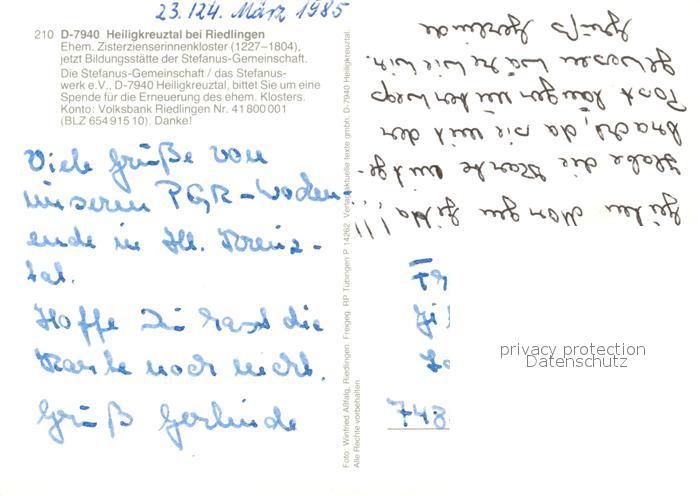 23./24. März 1985
210 D-7940 Heiligkreuztal bei Riedlingen
Ehem. Zisterzienserinnenkloster (1227–1804),
jetzt Bildungsstätte der Stefanus-Gemeinschaft.
Die Stefanus-Gemeinschaft / das Stefanus-
werk e.V., D-7940 Heiligkreuztal, bittet Sie um eine
Spende für die Erneuerung des ehem. Klosters.
Konto: Volksbank Riedlingen Nr. 41 800 001
(BLZ 654 915 10). Danke!
Viele Grüße von
unserem PGR-Wochen-
ende in Hl. Kreuz-
tal.
Hoffe Du hast die
Karte noch nicht.
Gruß Gerlinde
Foto: Winfried Aßfalg, Riedlingen. Freigeg. RP Tübingen P 14262. Verlag aktuelle texte gmbh, D-7940 Heiligkreuztal.
Alle Rechte vorbehalten.
Guten Morgen Gilda!!!
Habe die Karte mitge-
bracht, da sie mit der
Post länger unterwegs
gewesen wäre wie wir.
Gruß Gerlinde
Fr
748
privacy protection
Datenschutz